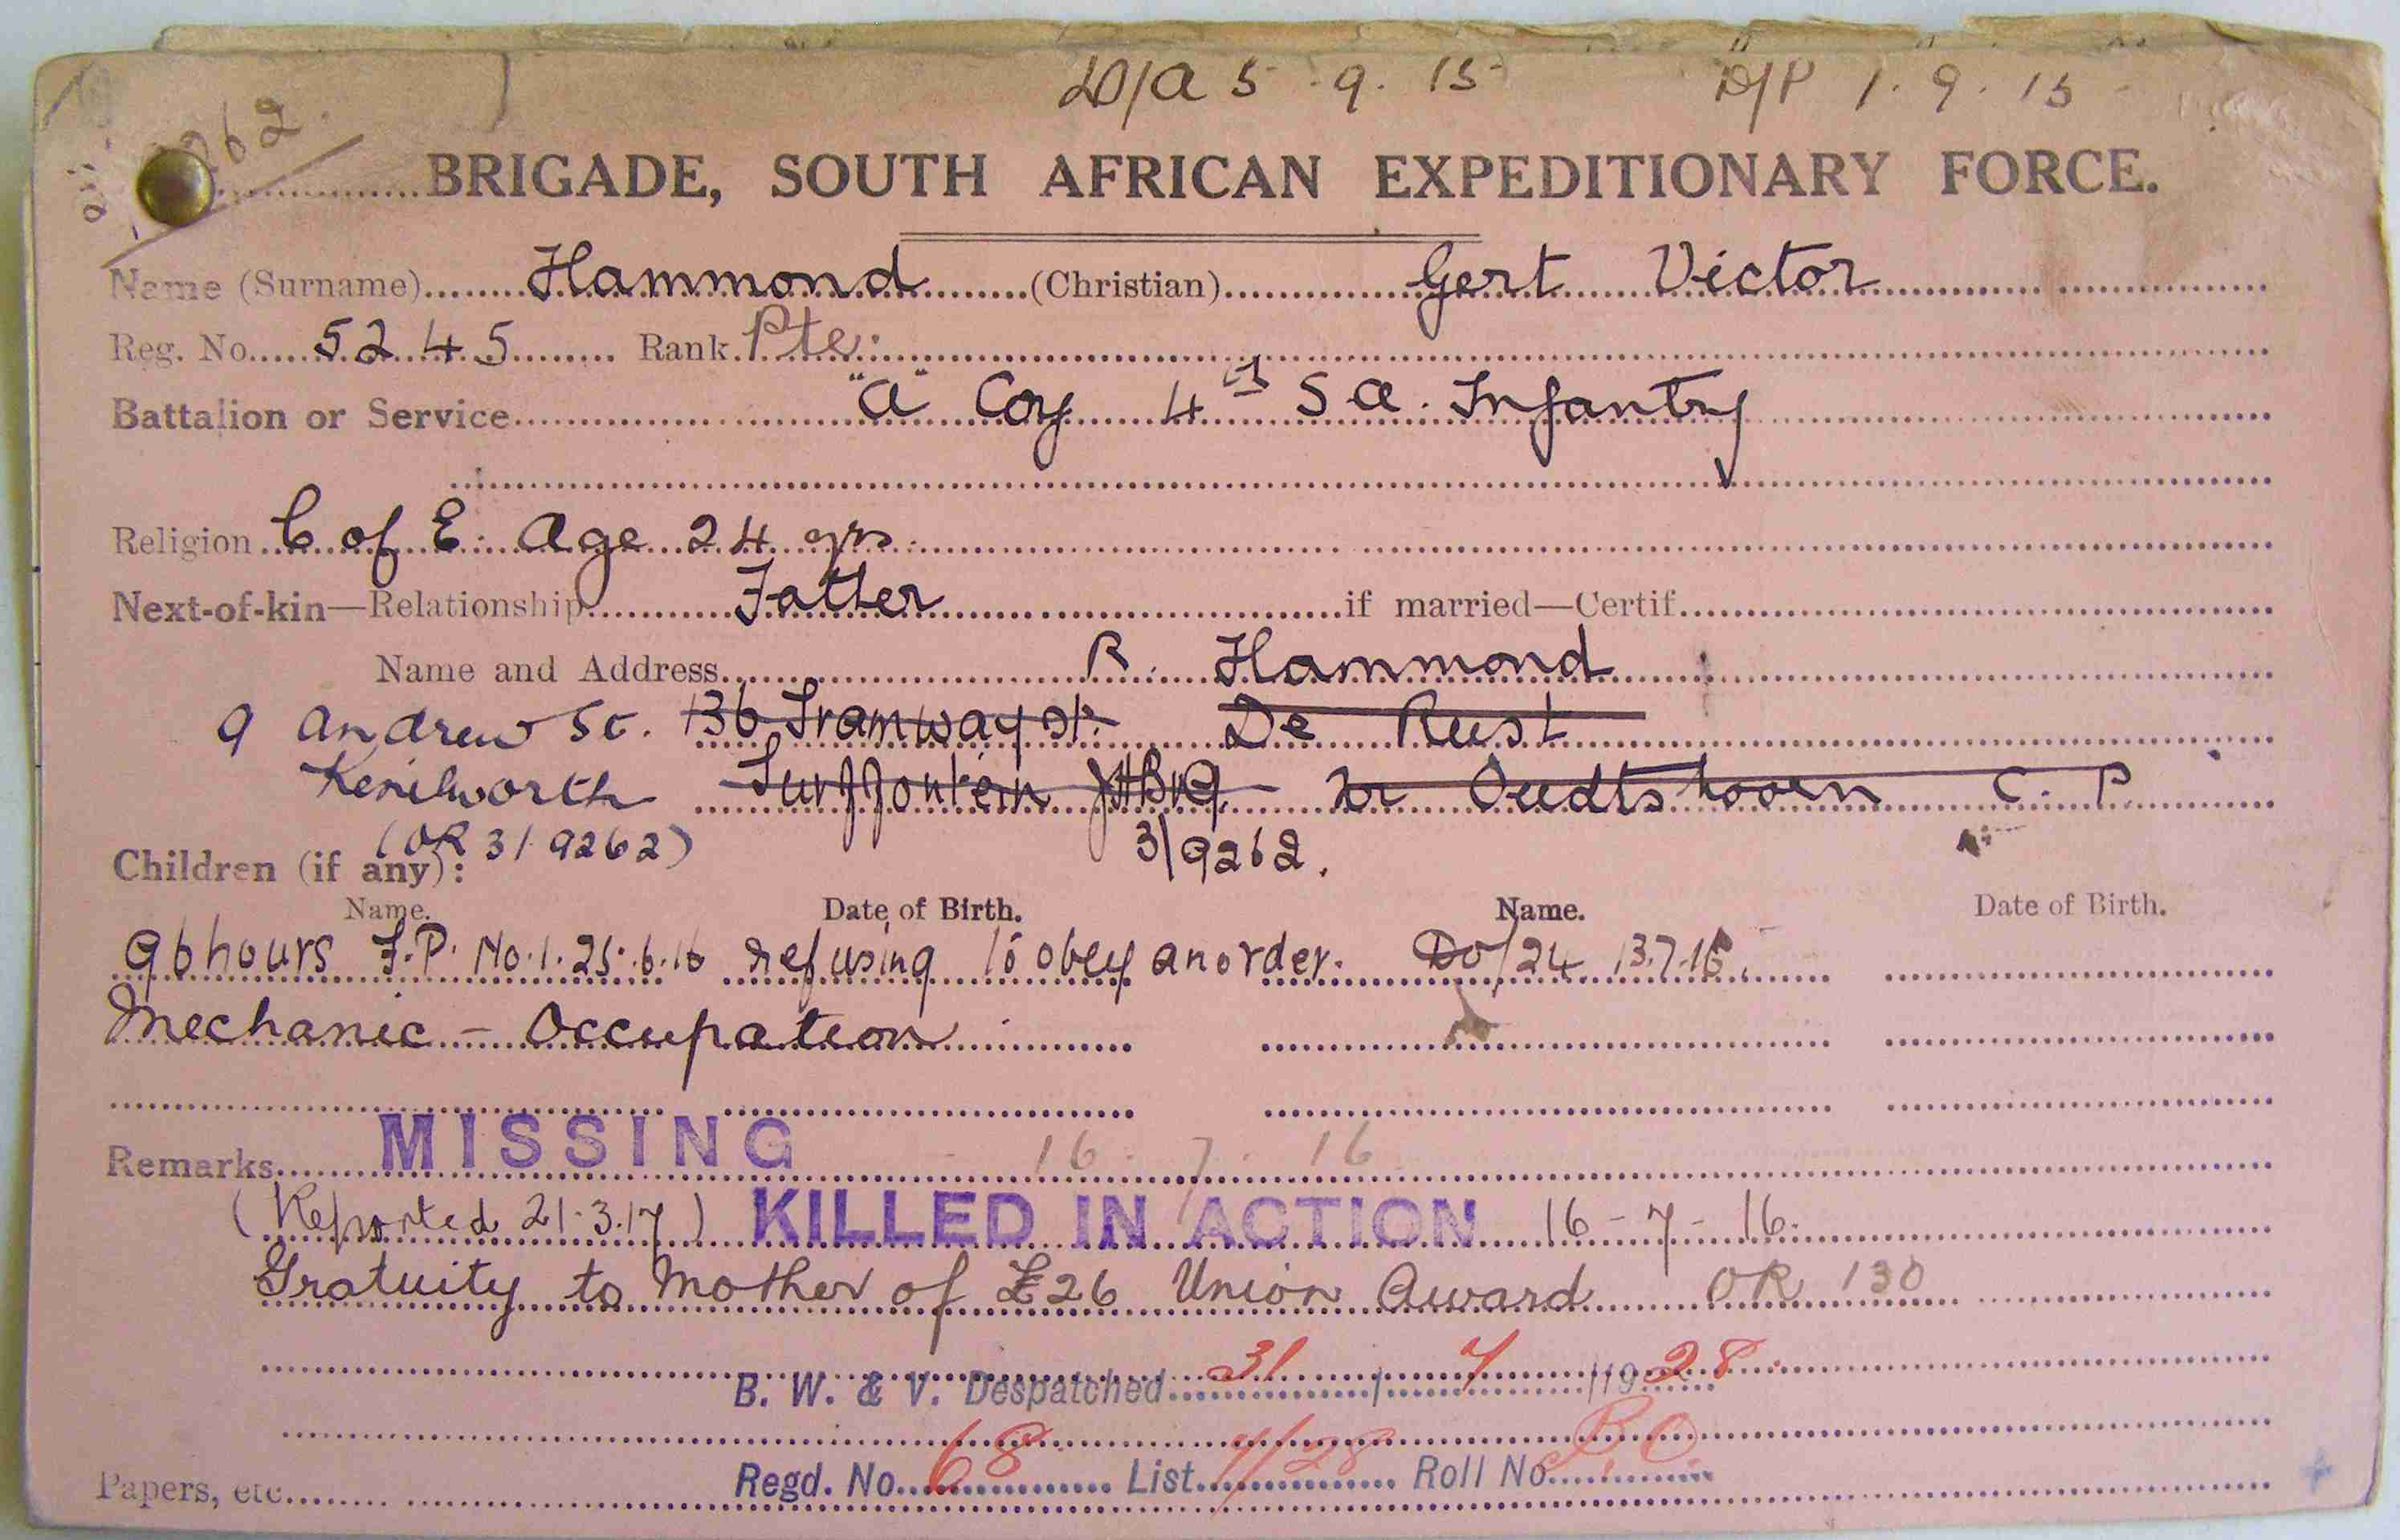 D/A 5.9.15 D/P 1.9.15
262.
BRIGADE, SOUTH AFRICAN EXPEDITIONARY FORCE.
Name (Surname) Hammond (Christian) Gert Victor
Reg. No. 5245 Rank Pte.
Battalion or Service "A" Coy 4th S.A. Infantry
Religion C of E. Age 24 yrs.
Next-of-kin—Relationship Father if married—Certif.
Name and Address R. Hammond
9 Andrew St. 136 Tramway St. De Rust
Kenilworth Turffontein JHBRG Nr Oudtshoorn C.P.
(OR 3/9262) 3/9262.
Children (if any):
Name. Date of Birth. Name. Date of Birth.
96 hours F.P. No.1. 25.6.16 refusing to obey an order. DO/24 13.7.16.
Mechanic - Occupation
Remarks MISSING 16.7.16
(Reported 21.3.17) KILLED IN ACTION 16-7-16.
Gratuity to Mother of £26 Union Award OR 130
B. W. & V. Despatched 31/7/1928.
Regd. No. 68 List 7/28 Roll No. B.O.
Papers, etc.